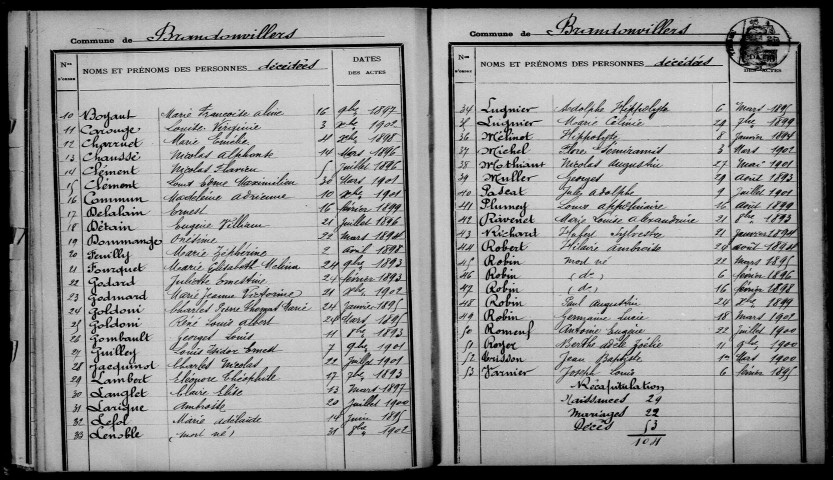 Commune de Brandonvillers
Nos D'ORDRE
NOMS ET PRÉNOMS DES PERSONNES décédées
DATES DES ACTES
10 Boyaut Marie Françoise Aline 16 9bre 1897
11 Carouge Louise Virginie 3 1902
12 Charinot Marie 1898
13 Chaussé Nicolas Alphonse 14 Mars 1896
14 Clément Nicolas Flavien 5 Juillet 1896
15 Clément Louis Maximilien Mars 1901
16 Commun Madeleine Adrienne 10 1901
17 Delalain Ernest 16 février 1899
18 Détain Eugène William 21 juillet 1896
19 Dommange Onésime 22 mars 1894
20 Feuilly Marie Zéphirine 2 avril 1898
21 Fourquet Marie Elisabeth Mélina 24 9bre 1893
22 Godard Juliette Ernestine 24 février 1893
23 Godmard Marie Jeanne Victorine 21 1902
24 Goldoni Charles Pierre Marie 24 Janvier 1895
25 Goldoni René Louis Albert 24 Mars 1895
26 Gombault Georges Louis 11 1893
27 Guilley Louis Ernest 9bre 1901
28 Jacquinot Charles Nicolas 22 juillet 1901
29 Lambert Eléonore Théophile 17 1893
30 Langlet Claire Elise 13 Mars 1897
31 Larique Ambroise 20 Juillet 1900
32 Lefol Marie Adélaïde 14 Juin 1895
33 Lenoble (mort né) 31 8bre 1902
Commune de Brandonvillers
Nos D'ORDRE
NOMS ET PRÉNOMS DES PERSONNES décédées
DES ACTES
34 Lugnier Adolphe Hippolyte 6 Mars 1895
35 Lugnier Marie Célinie 1899
36 Mélinot Hippolyte 8 Janvier 1894
37 Michel Flore Sémiramis 3 Mars 1902
38 Mathiaut Nicolas Augustin 27 1901
39 Muller Georges 29 Août 1893
40 Pascat Jules Adolphe 9 Juillet 1901
41 Plumey Louis Appolinaire 16 Août 1899
42 Ravenet Marie Louise Alexandrine 21 8bre 1893
43 Richard Sylvestre 21 Janvier 1894
44 Robert Hilaire Ambroise 24 août 1894
45 Robin mort né 22 mars 1895
46 Robin (do) 6 février 1896
47 Robin (do) 16 février 1898
48 Robin Paul Augustin 24 1899
49 Robin Germaine Lucie 18 Mars 1901
50 Romeuf Antoine Eugène 22 Juillet 1900
51 Royer Berthe Adèle Zoélie 11 9bre 1900
52 Trisson Jean Baptiste 1er Mars 1900
53 Varnier Joseph Louis 6 février 1895
Récapitulation
Naissances 29
Mariages 22
Décès 53
104